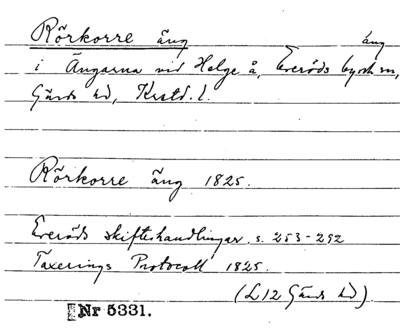 Rörkorre äng äng
i Ängarna vid Helge å, Everöds by o. sn,
Gärds hd, Krstd. l.
Rörkorre äng 1825.
Everöds skifteshandlingar s. 253-292
Taxerings Protocoll 1825.
(L12 Gärds hd).
Nr 5331.